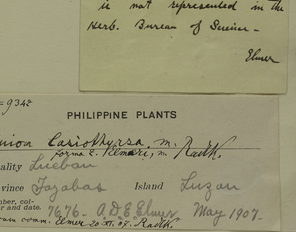 is not represented in the
Herb. Bureau of Science -
Elmer
=9342
PHILIPPINE PLANTS
Cariothyrsa, m.
forma 2. Elmeri, m. Radlk.
ality Lucban
vince Tayabas Island Luzon
ber, col-
r and date. 7676. A.D.E. Elmer May 1907.
comm. Elmer 20. XI. 07. Radlk.